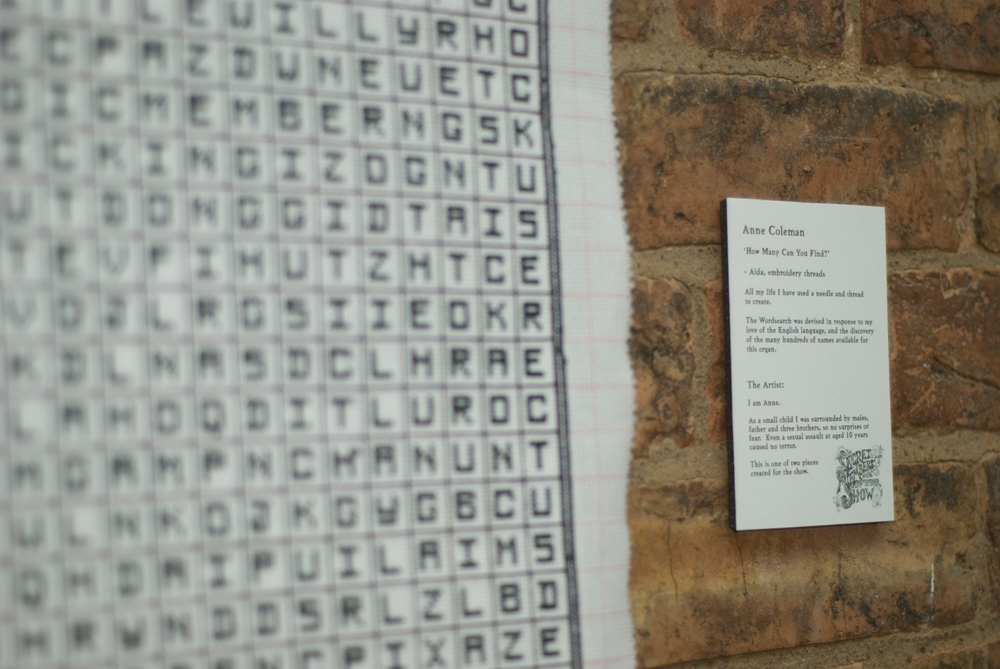 WILLYRHO
ECPAZDWNEUETC
GICMEMBERNGSK
ICKINGIZOGNTU
UTDONGGIDTAIS
PIHUTZHTCE
VOZLRGSIIEOKR
KDLNASDCLHRAE
DITLUROC
PNCMANUNT
WLNKO KGYGBCU
QHDAIPUILAIMS
HRWNDDSRLZLBD
PIXAZE
Anne Coleman
'How Many Can You Find?'
- Aida, embroidery threads
All my life I have used a needle and thread
to create.
The Wordsearch was devised in response to my
love of the English language, and the discovery
of the many hundreds of names available for
this organ.
The Artist:
I am Anne.
As a small child I was surrounded by males,
father and three brothers, so no surprises or
fear. Even a sexual assault at aged 10 years
caused no terror.
This is one of two pieces
created for the show.
SHOW